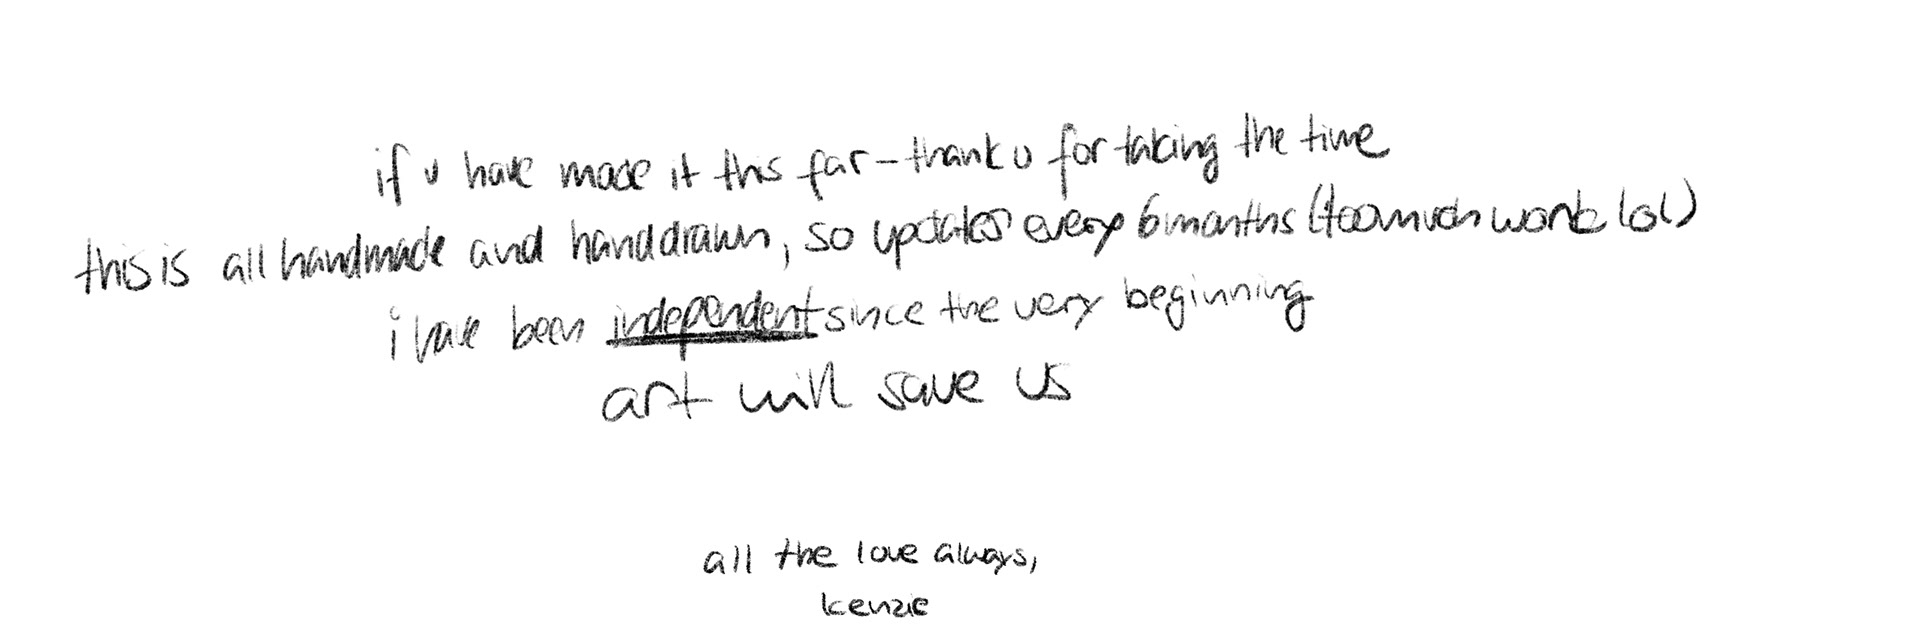 if u have made it this far - thank u for taking the time
this is all handmade and handdrawn, so updates every 6 months (too much work lol)
i have been independent since the very beginning
art will save us
all the love always,
kenzie